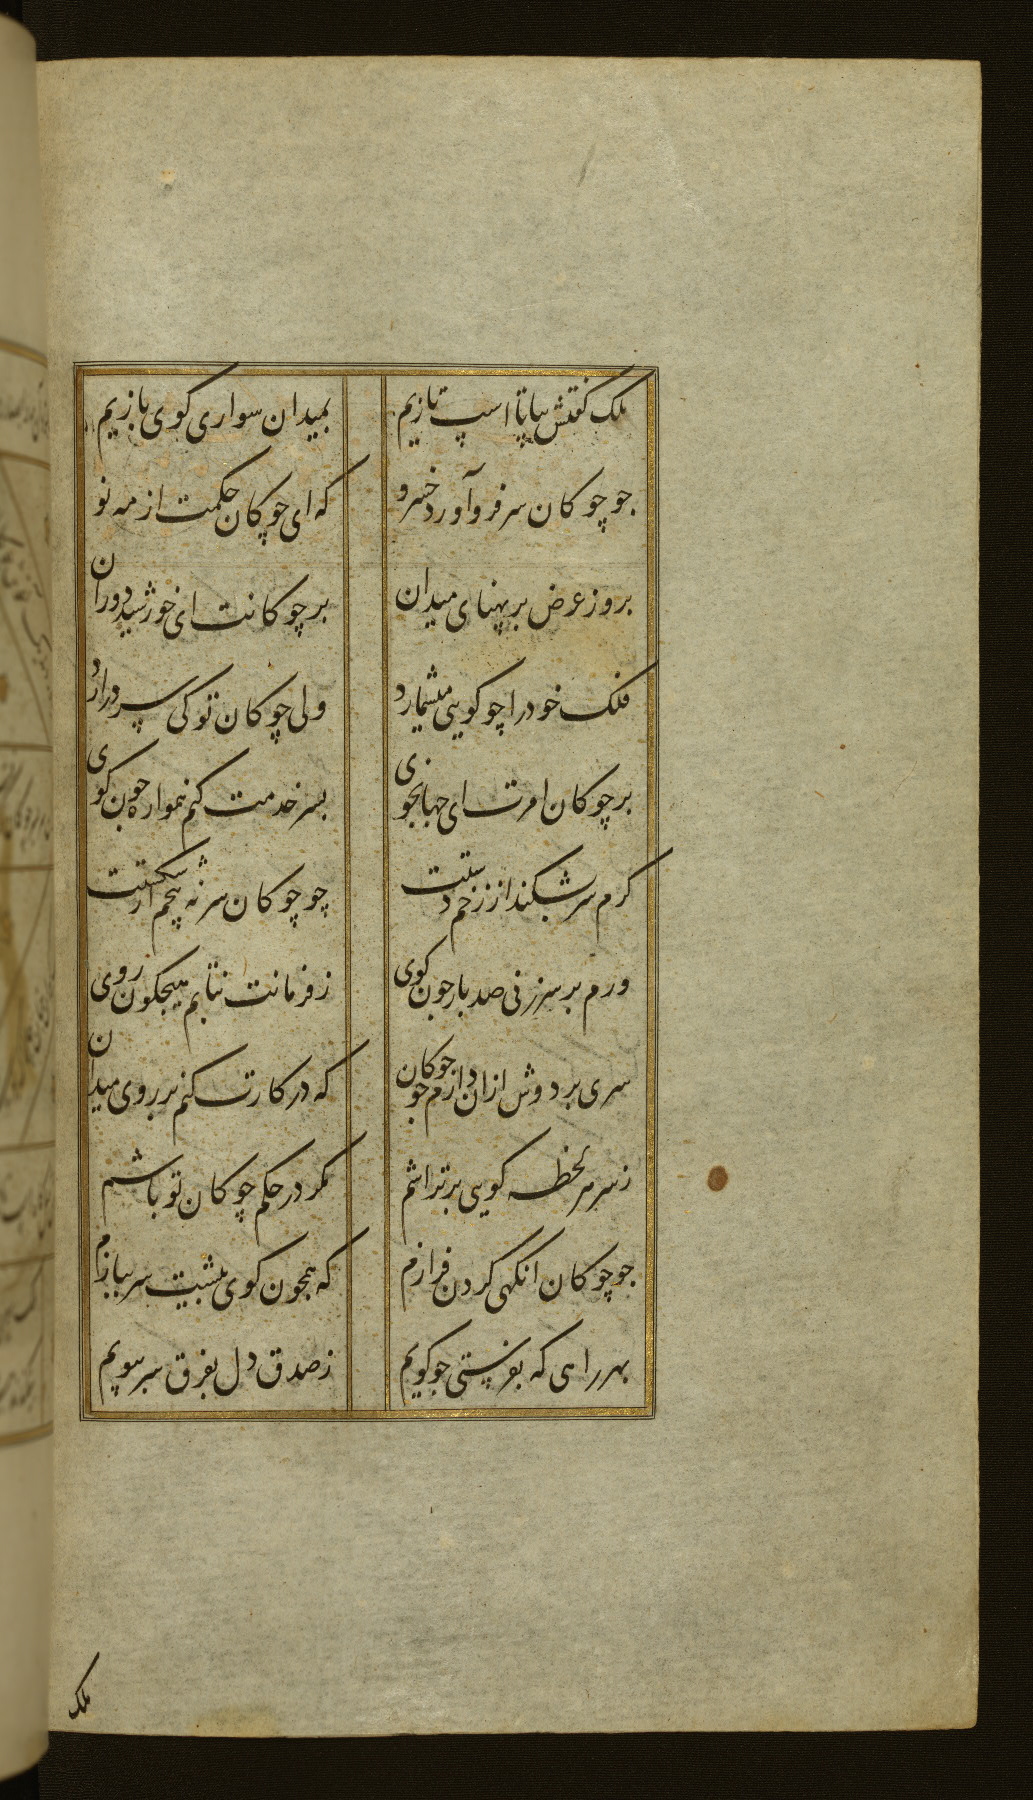 ملک گفتش بیا تا اسپ تازیم بمیدان سواری گوی بازیم
جو چوکان سر فرو آورد خسرو که ای چوکان حکمت از مه نو
بروز عرض بر پهنای میدان بر چوکانت ای خورشید دوران
فلک خود را چو کویی میشمارد ولی چوکان تو کی سر در ارد
بر چوکان امرت ای جهانجوی بسر خدمت کنم همواره جون کوی
کرم سر بشکند از زخم دستت چو چوکان سر نه پیچم از شکستت
ورم بر سر زنی صد بار جون کوی ز فرمانت نتابم هیجکون روی
سری بر دوش ازان دارم جو جوکان که در کارت کنم بر روی میدان
ز سر هر لحظه کویی برتراشم مکر در حکم چوکان تو باشم
جو چوکان انکهی کردن فرازم که همجون کوی پیشیت سر ببازم
بهر راهی که بفرستی جو کویم ز صدق دل بفرق سر بپویم
ملک